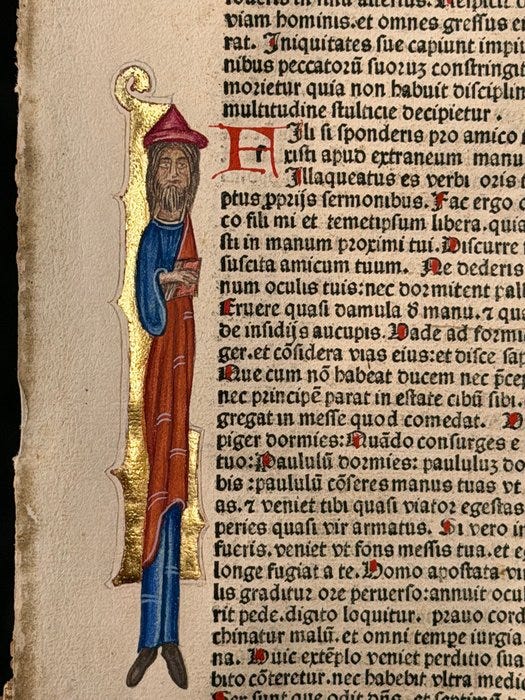 viam hominis.et omnes gressus e
rat. Iniquitates sue capiunt impi
nibus peccatorū suoruʒ constringit
morietur quia non habuit disciplin
multitudine stulticie decipietur.
Fili si sponderis pro amico
xisti apud extraneum manu
Illaqueatus es verbi oris t
ptus ꝓprijs sermonibus. Fac ergo
co fili mi et temetipsum libera.quia
sti in manum proximi tui. Discurre
suscita amicum tuum. Ne dederis
num oculis tuis:nec dormitent pal
Eruere quasi damula đ manu.⁊ qua
de insidijs aucupis. Vade ad formi
ger.et cōsidera vias eius:et disce sap
Que cum nō habeat ducem nec p̄cep
nec principē parat in estate cibū sibi.
gregat in messe quod comedat.
piger dormies:Quādo consurges e
tuo:Paululū dormies: paululuʒ do
bis :paululū cōseres manus tuas vt
as.⁊ veniet tibi quasi viator egestas
peries quasi vir armatus. Si vero i
fueris.veniet vt fons messis tua.et e
longe fugiat a te. Homo apostata vi
lis graditur ore peruerso:annuit ocul
rit pede.digito loquitur. prauo cord
chinatur malū.et omni tempe iurgia
na. Huic extēplo veniet perditio sua
bito cōteretur.nec habebit vltra medi
Sex sunt que odit